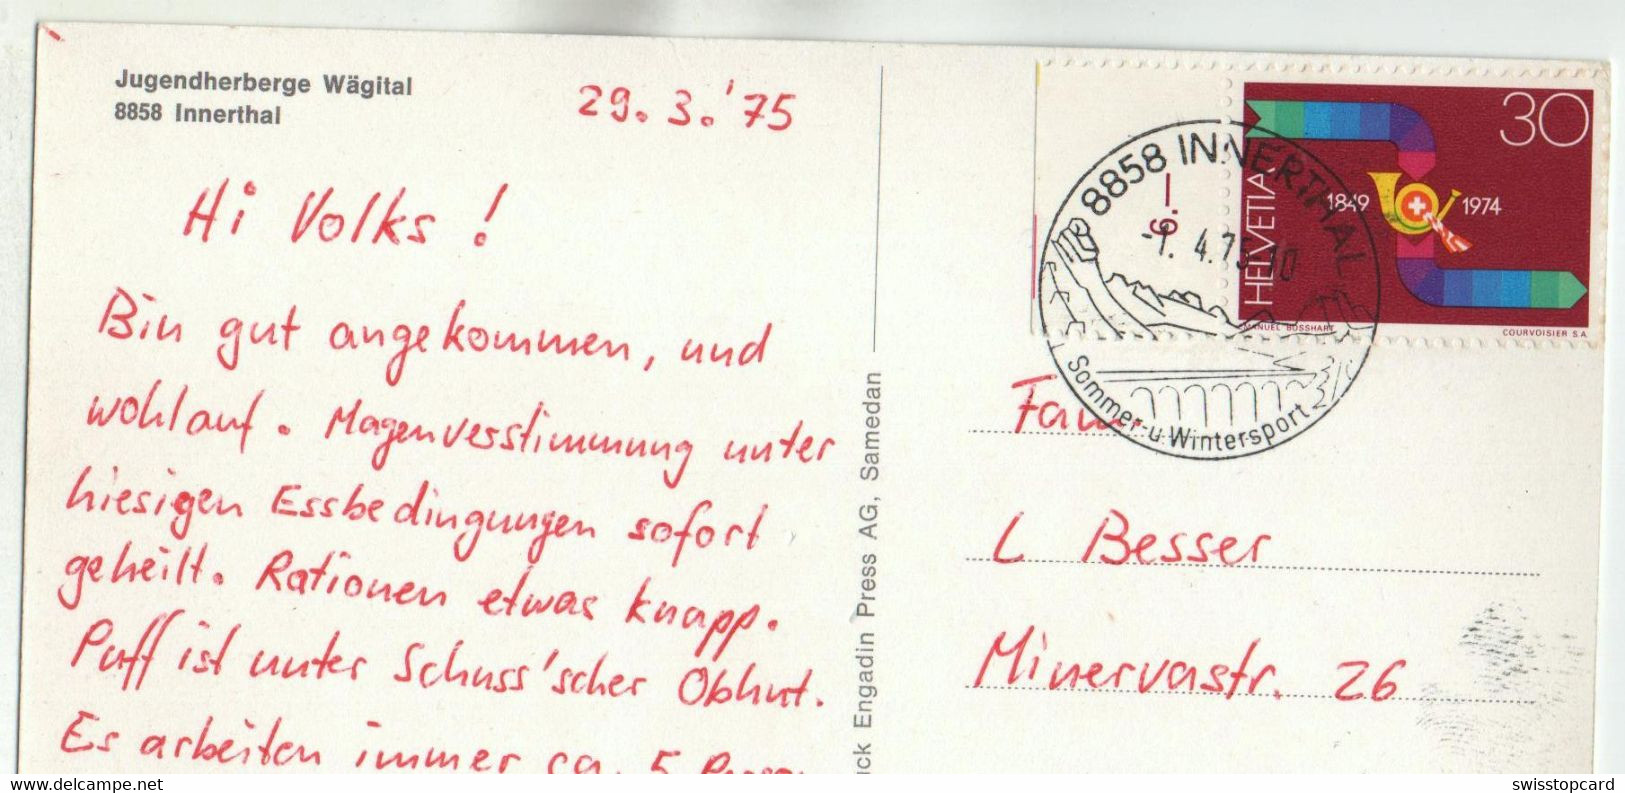 Jugendherberge Wägital
8858 Innerthal
29. 3. '75
Hi Volks!
Bin gut angekommen, und
wohlauf. Magenverstimmung unter
hiesigen Essbedingungen sofort
geheilt. Rationen etwas knapp.
Puff ist unter Schuss'scher Obhut.
Es arbeiten immer ca. 5
ck Engadin Press AG, Samedan
6.—
30
HELVETIA
1849 1974
MANUEL BOSSHART
COURVOISIER S.A.
8858 INNERTHAL
-1. 4.75-10
Sommer- u. Wintersport
Fam.
L Besser
Minervastr. 26
delcampe.net
swisstopcard